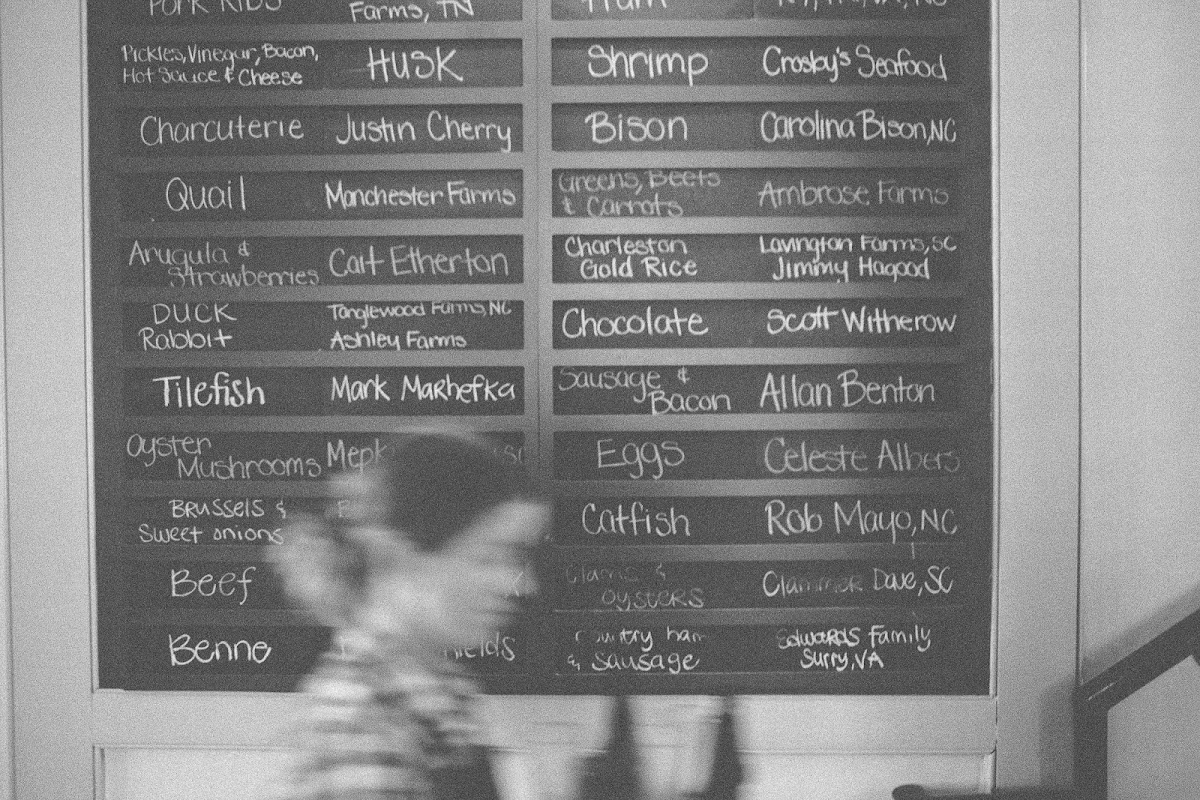 PORK RIBS
Farms, TN
Pickles, Vinegar, Bacon,
Hot Sauce & Cheese
HUSK
Charcuterie
Justin Cherry
Quail
Manchester Farms
Arugula &
Strawberries
Cait Etherton
DUCK
Rabbit
Tanglewood Farms, NC
Ashley Farms
Tilefish
Mark Marhefka
Oyster
Mushrooms
BRUSSELS &
Sweet onions
Beef
Benne
Ham
Shrimp
Crosby's Seafood
Bison
Carolina Bison, NC
Greens, Beets
& Carrots
Ambrose Farms
Charleston
Gold Rice
Lavington Farms, SC
Jimmy Hagood
Chocolate
Scott Witherow
Sausage &
Bacon
Allan Benton
Eggs
Celeste Albers
Catfish
Rob Mayo, NC
Clams &
oysters
Clammer Dave, SC
Country ham
& Sausage
Edwards Family
Surry, VA